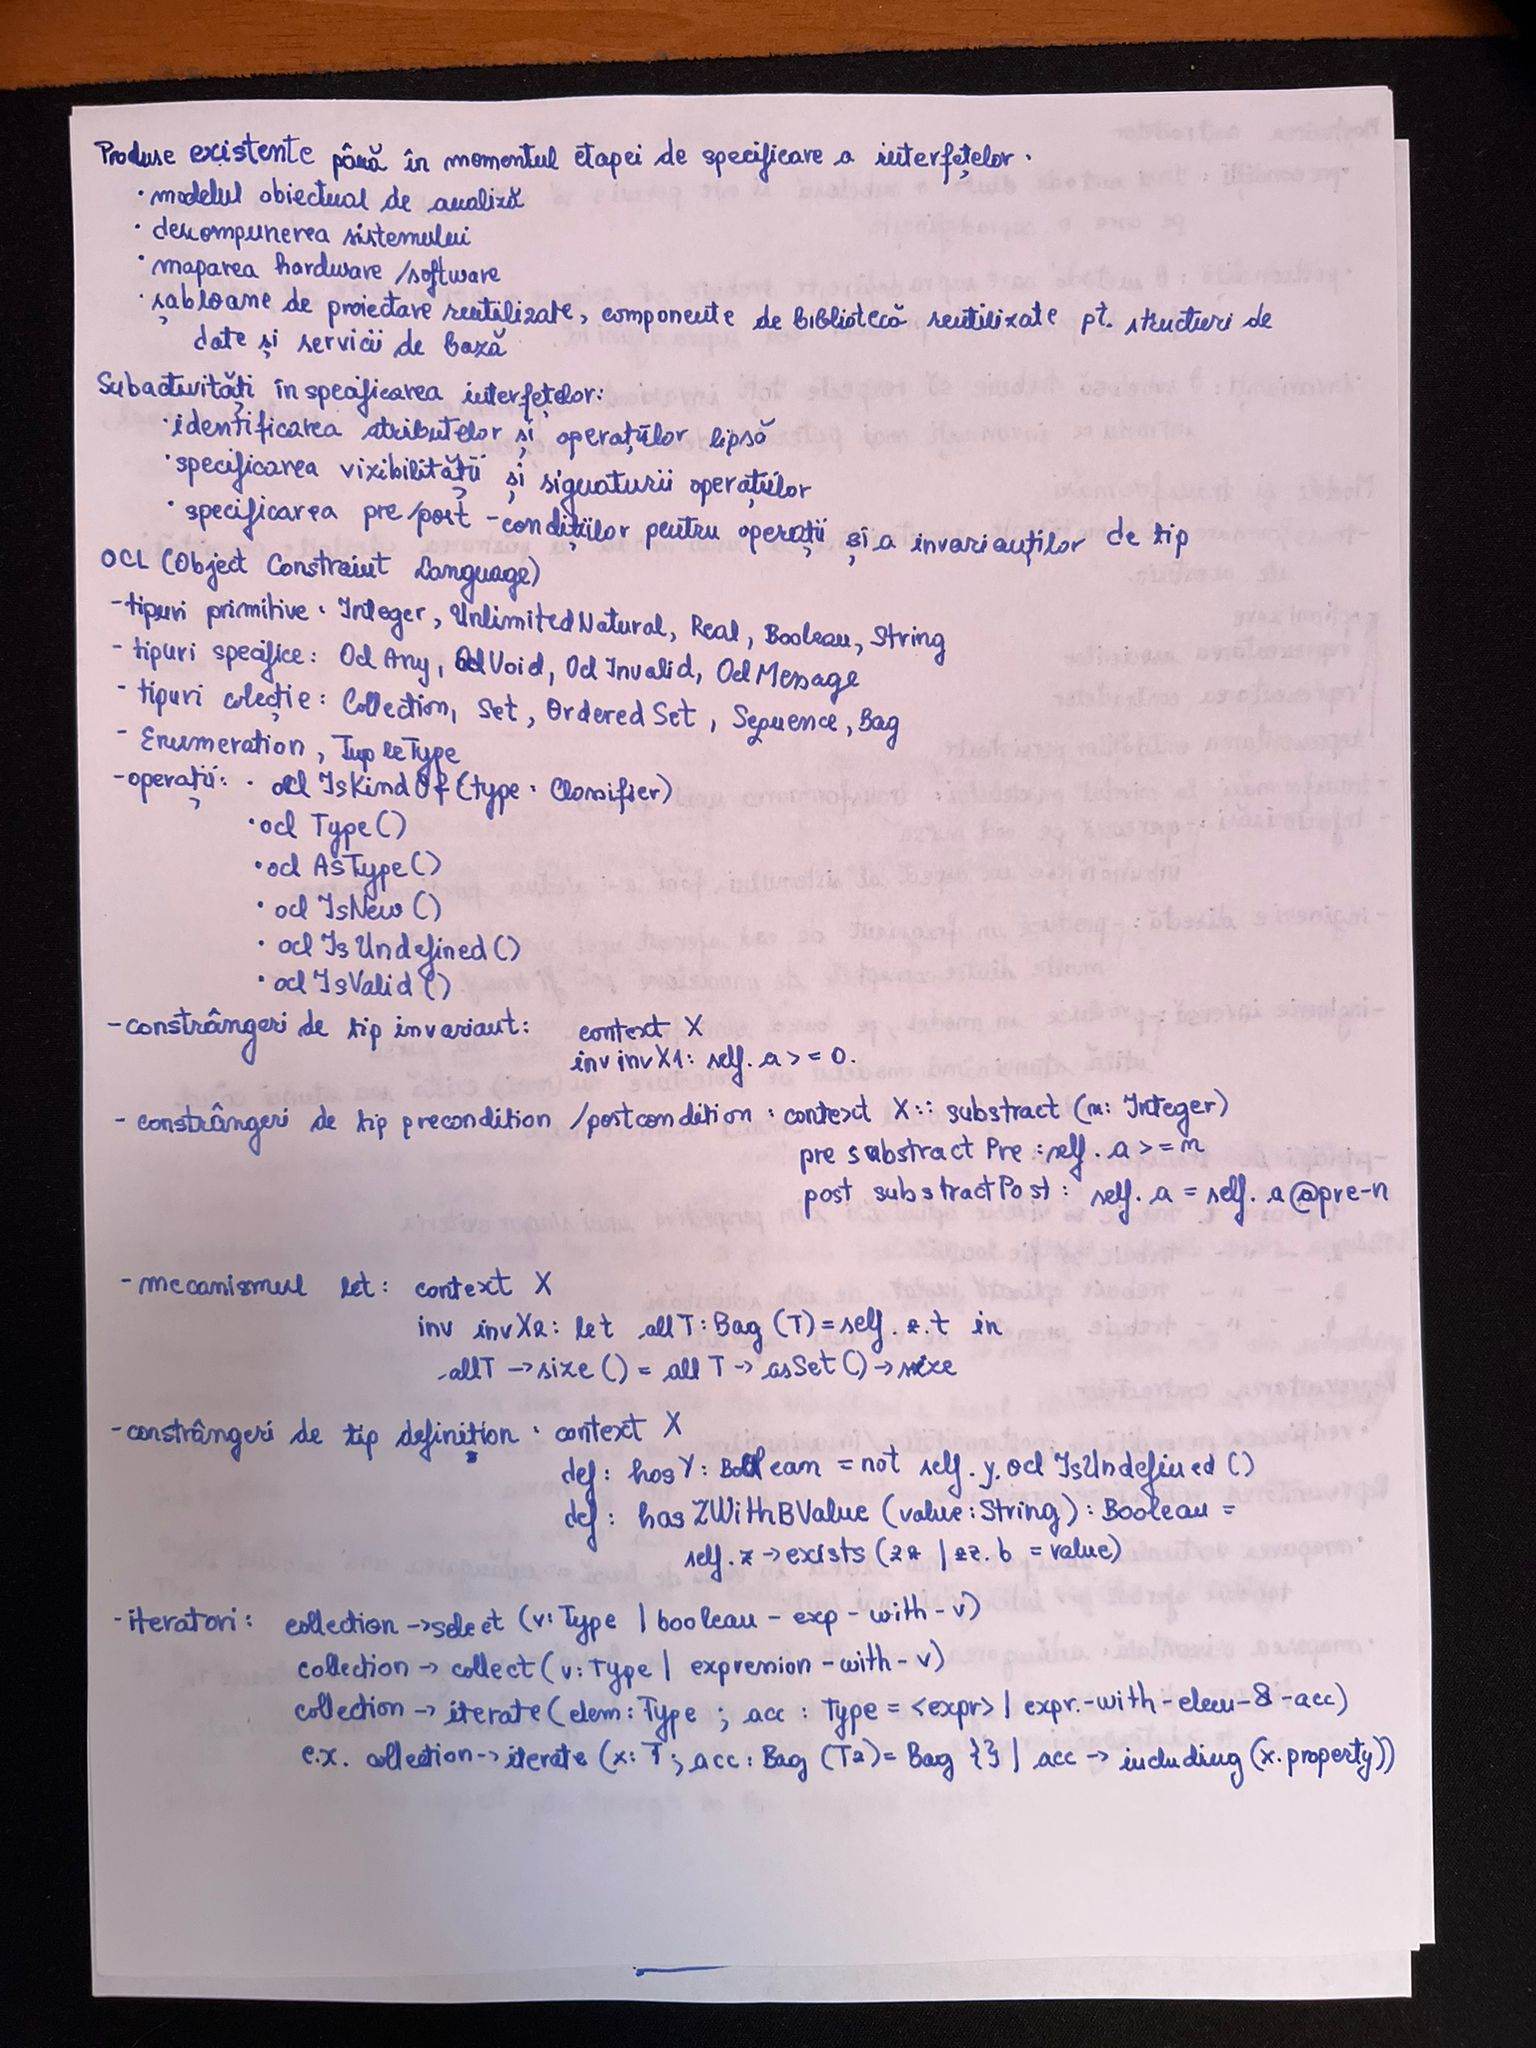 Produse existente până în momentul etapei de specificare a interfețelor.
• modelul obiectual de analiză
• descompunerea sistemului
• maparea hardware/software
• șabloane de proiectare reutilizate, componente de bibliotecă reutilizate pt. structuri de
date și servicii de bază
Subactivități în specificarea interfețelor:
• identificarea atributelor și operațiilor lipsă
• specificarea vizibilității și signaturii operațiilor
• specificarea pre/post-condițiilor pentru operații și a invarianților de tip
OCL (Object Constraint Language)
- tipuri primitive: Integer, UnlimitedNatural, Real, Boolean, String
- tipuri specifice: OclAny, OclVoid, OclInvalid, OclMessage
- tipuri colecție: Collection, Set, OrderedSet, Sequence, Bag
- Enumeration, TupleType
- operații: • oclIsKindOf(type: Classifier)
• oclType()
• oclAsType()
• oclIsNew()
• oclIsUndefined()
• oclIsValid()
- constrângeri de tip invariant: context X
inv invX1: self.a >= 0.
- constrângeri de tip precondition/postcondition: context X:: substract (n: Integer)
pre substractPre: self.a >= n
post substractPost: self.a = self.a@pre-n
- mecanismul let: context X
inv invX2: let allT: Bag(T) = self.z.t in
allT -> size() = allT -> asSet() -> size
- constrângeri de tip definition: context X
def: hasY: Boolean = not self.y.oclIsUndefined()
def: hasZWithBValue (value: String): Boolean =
self.z -> exists (zz | zz.b = value)
- iteratori: collection -> select (v: Type | boolean-exp-with-v)
collection -> collect (v: Type | expression-with-v)
collection -> iterate (elem: Type; acc: Type = <expr> | expr.-with-elem-&-acc)
ex. collection -> iterate (x: T1; acc: Bag (T2) = Bag {} | acc -> including (x.property))